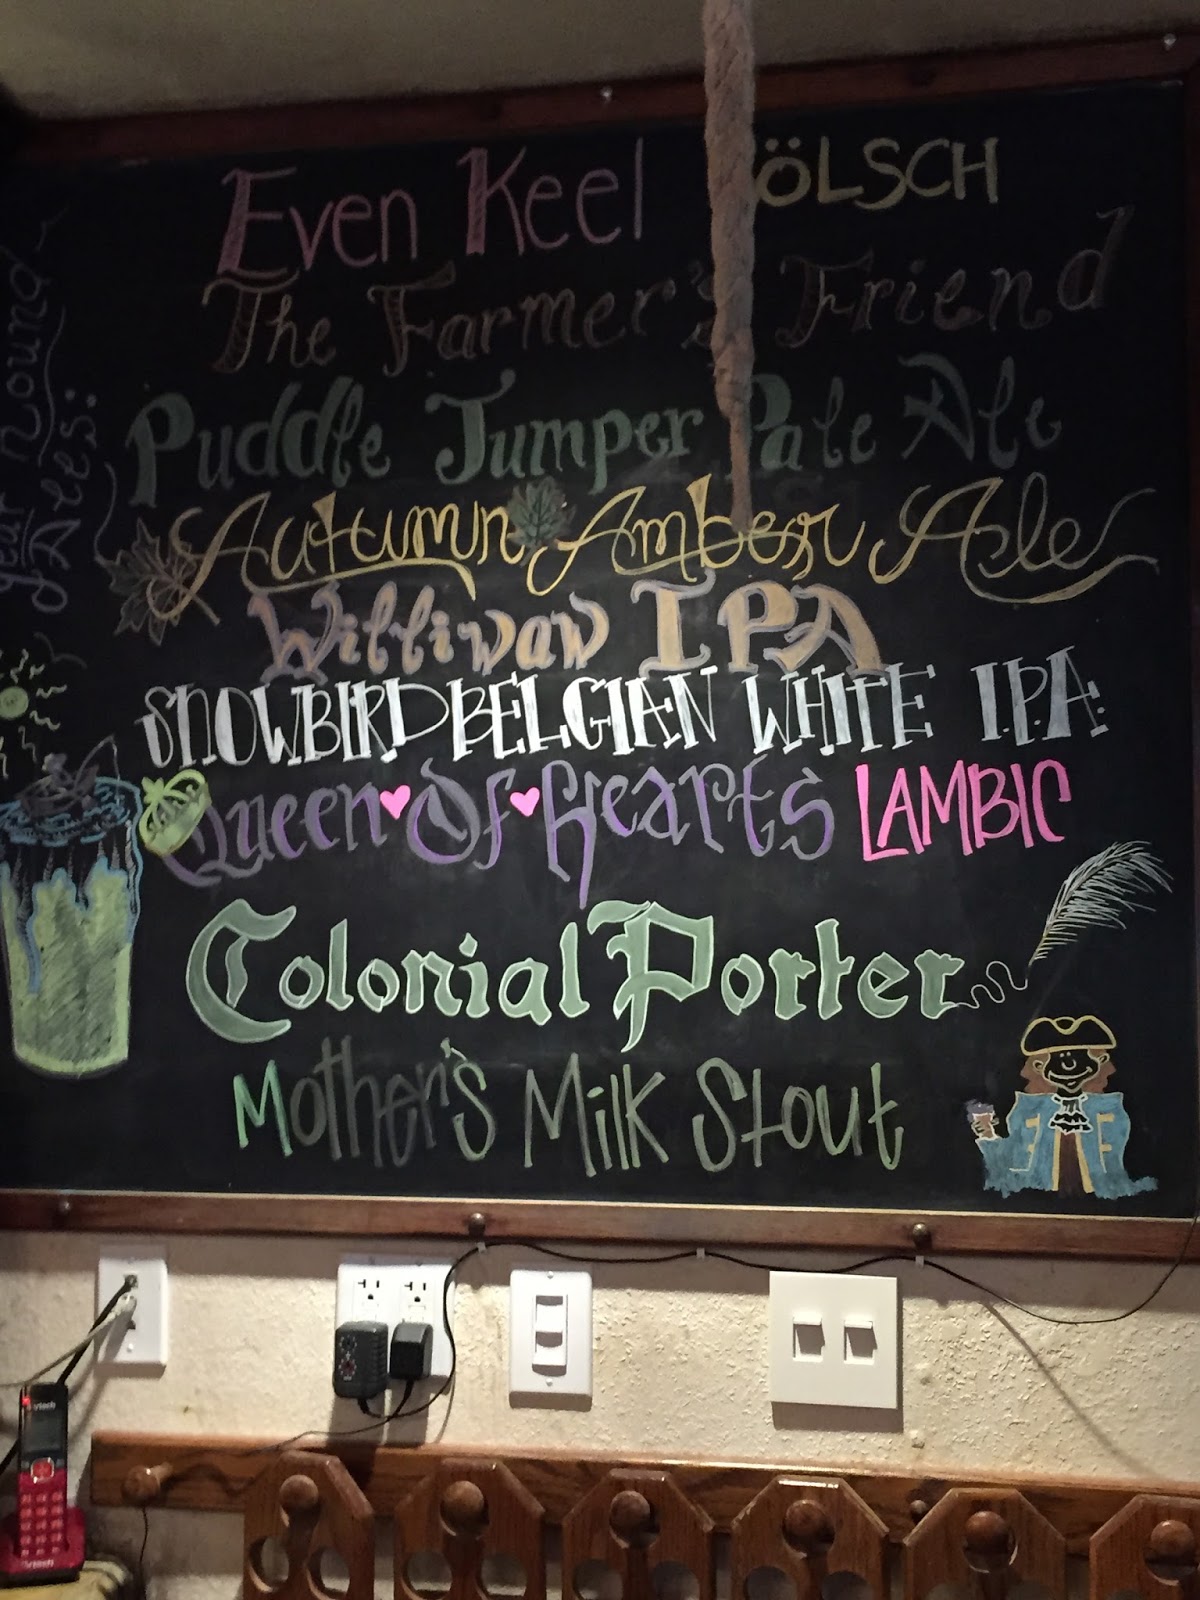 Even Keel ÖLSCH
The Farmer's Friend
Puddle Jumper Pale Ale
Autumn Amber Ale
Williwaw IPA
SNOWBIRD BELGIAN WHITE I.P.A.
Queen Of Hearts LAMBIC
Colonial Porter
Mother's Milk Stout
year round
Ales:
vtech